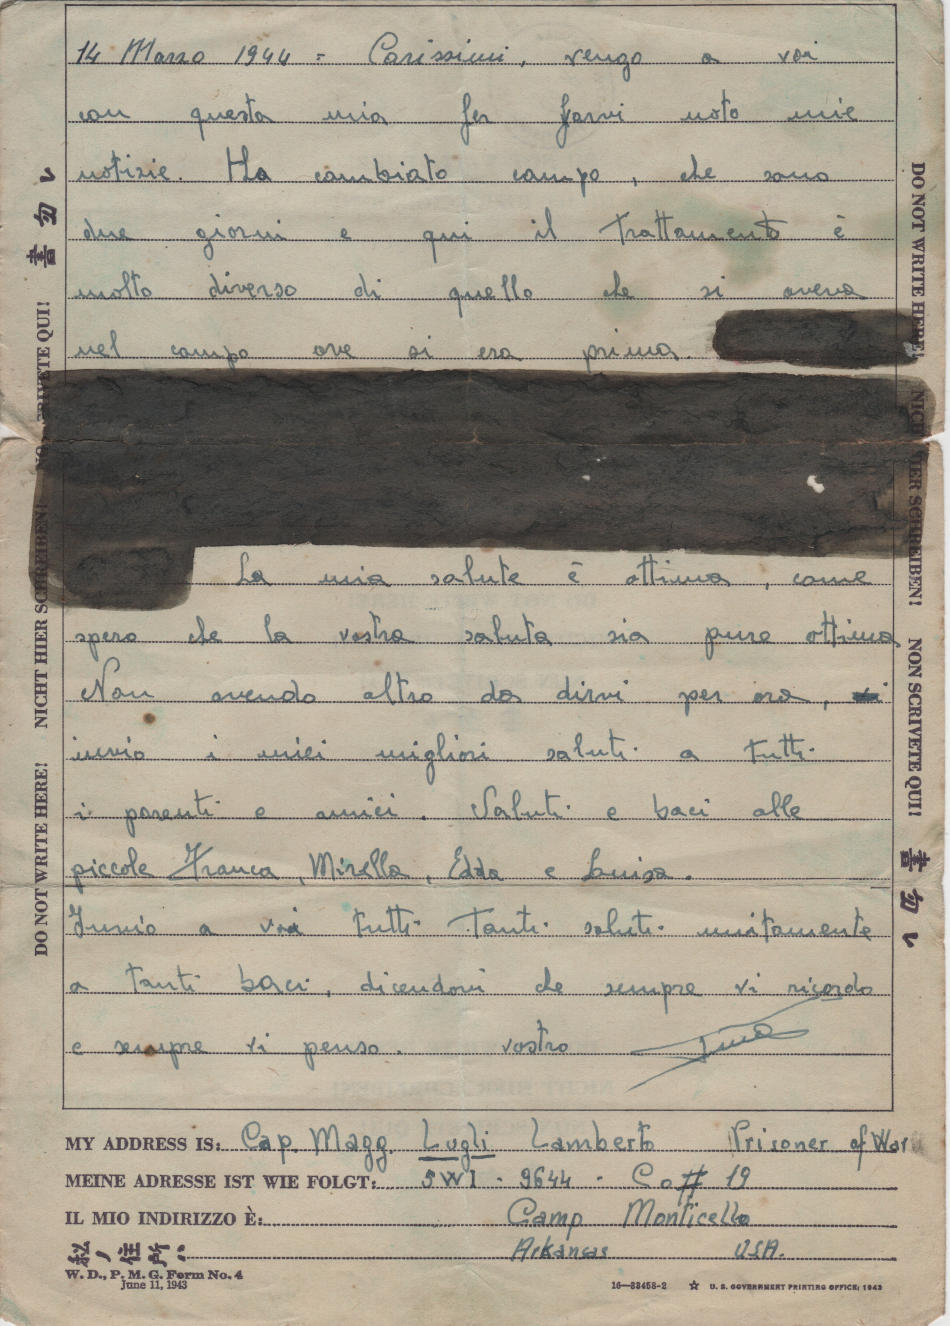 14 Marzo 1944 = Carissimi, vengo a voi
con questa mia per farvi noto mie
notizie. Ho cambiato campo, che sono
due giorni e qui il trattamento è
molto diverso di quello che si aveva
nel campo ove si era prima.
La mia salute è ottima, come
spero che la vostra saluta sia pure ottima
Non avendo altro da dirvi per ora,
invio i miei migliori saluti a tutti
i parenti e amici. Saluti e baci alle
piccole Franca, Mirella, Edda e Luisa.
Invio a voi tutti tanti saluti unitamente
a tanti baci, dicendovi che sempre vi ricordo
e sempre vi penso. vostro
MY ADDRESS IS: Cap. Magg. Lugli Lamberto Prisoner of War
MEINE ADRESSE IST WIE FOLGT: 5WI - 9644 - Co # 19
IL MIO INDIRIZZO È: Camp Monticello
私ノ住所ハ Arkansas USA.
W. D., P. M. G. Form No. 4
June 11, 1943
16—33458-2 ☆ U. S. GOVERNMENT PRINTING OFFICE: 1943
DO NOT WRITE HERE! NICHT HIER SCHREIBEN! NON SCRIVETE QUI! 書勿レ
DO NOT WRITE HERE! NICHT HIER SCHREIBEN! NON SCRIVETE QUI! 書勿レ